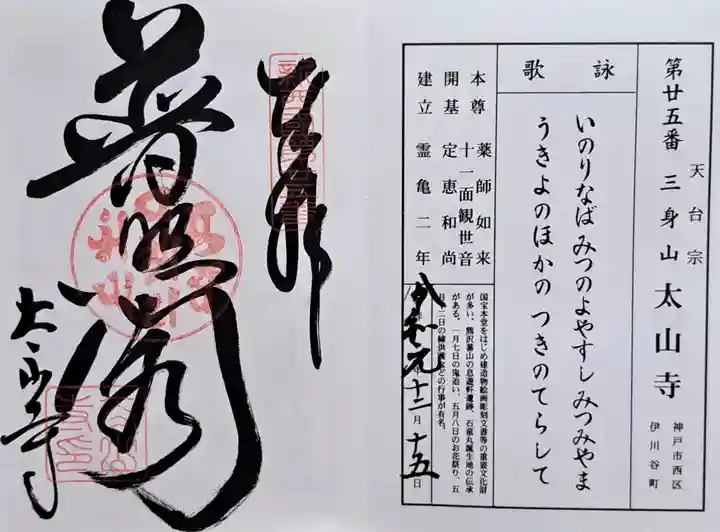 第廿五番 三身山 太山寺
天台宗
神戸市西区
伊川谷町
詠歌
いのりなば みつのよやすし みつみやま
うきよのほかの つきのてらして
本尊 薬師如来
十一面観世音
開基 定恵和尚
建立 霊亀二年
国宝本堂をはじめ建造物絵画彫刻文書等の重要文化財
が多い。熊沢蕃山の息遊軒遺跡、石童丸誕生地の伝承
がある。一月七日の鬼追い、五月八日のお花祭り、五
月十二日の練供養などの行事が有名。
令和元年十二月十五日
奉拝
普照閣
太山寺